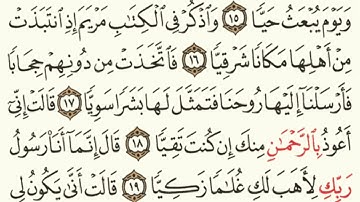 وَيَوْمَ يُبْعَثُ حَيًّا ١٥ وَاذْكُرْ فِي الْكِتَابِ مَرْيَمَ إِذِ انتَبَذَتْ
مِنْ أَهْلِهَا مَكَانًا شَرْقِيًّا ١٦ فَاتَّخَذَتْ مِن دُونِهِمْ حِجَابًا
فَأَرْسَلْنَا إِلَيْهَا رُوحَنَا فَتَمَثَّلَ لَهَا بَشَرًا سَوِيًّا ١٧ قَالَتْ إِنِّي
أَعُوذُ بِالرَّحْمَٰنِ مِنكَ إِن كُنتَ تَقِيًّا ١٨ قَالَ إِنَّمَا أَنَا رَسُولُ
رَبِّكِ لِأَهَبَ لَكِ غُلَامًا زَكِيًّا ١٩ قَالَتْ أَنَّىٰ يَكُونُ لِي